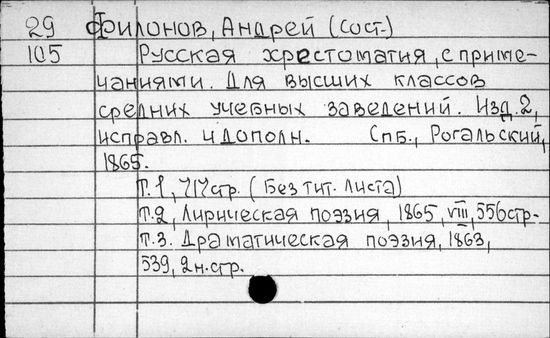 29 Филонов, Андрей (сост.)
105 Русская хрестоматия, с приме-
чаниями. Для высших классов
средних учебных заведений. Изд. 2,
исправл. и дополн. Спб., Рогальский,
1865.
Т. 1, 717 стр. (Без тит. листа)
Т. 2, Лирическая поэзия, 1865, VIII, 556 стр.
Т. 3. Драматическая поэзия, 1863,
539, 2 н. стр.